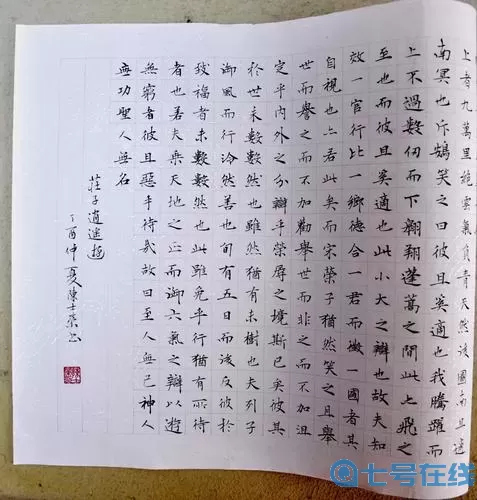 上者九萬里絕雲氣負青天然後圖南且適
南冥也斥鴳笑之曰彼且奚適也我騰躍而
上不過數仞而下翱翔蓬蒿之間此亦飛之
至也而彼且奚適也此小大之辯也故夫知
效一官行比一鄉德合一君而徵一國者其
自視也亦若此矣而宋榮子猶然笑之且舉
世而譽之而不加勸舉世而非之而不加沮
定乎內外之分辯乎榮辱之境斯已矣彼其
於世未數數然也雖然猶有未樹也夫列子
御風而行泠然善也旬有五日而後反彼於
致福者未數數然也此雖免乎行猶有所待
者也若夫乘天地之正而御六氣之辯以遊
無窮者彼且惡乎待哉故曰至人無己神人
無功聖人無名
莊子逍遙遊
丁酉仲夏陳士榮書
七号在线